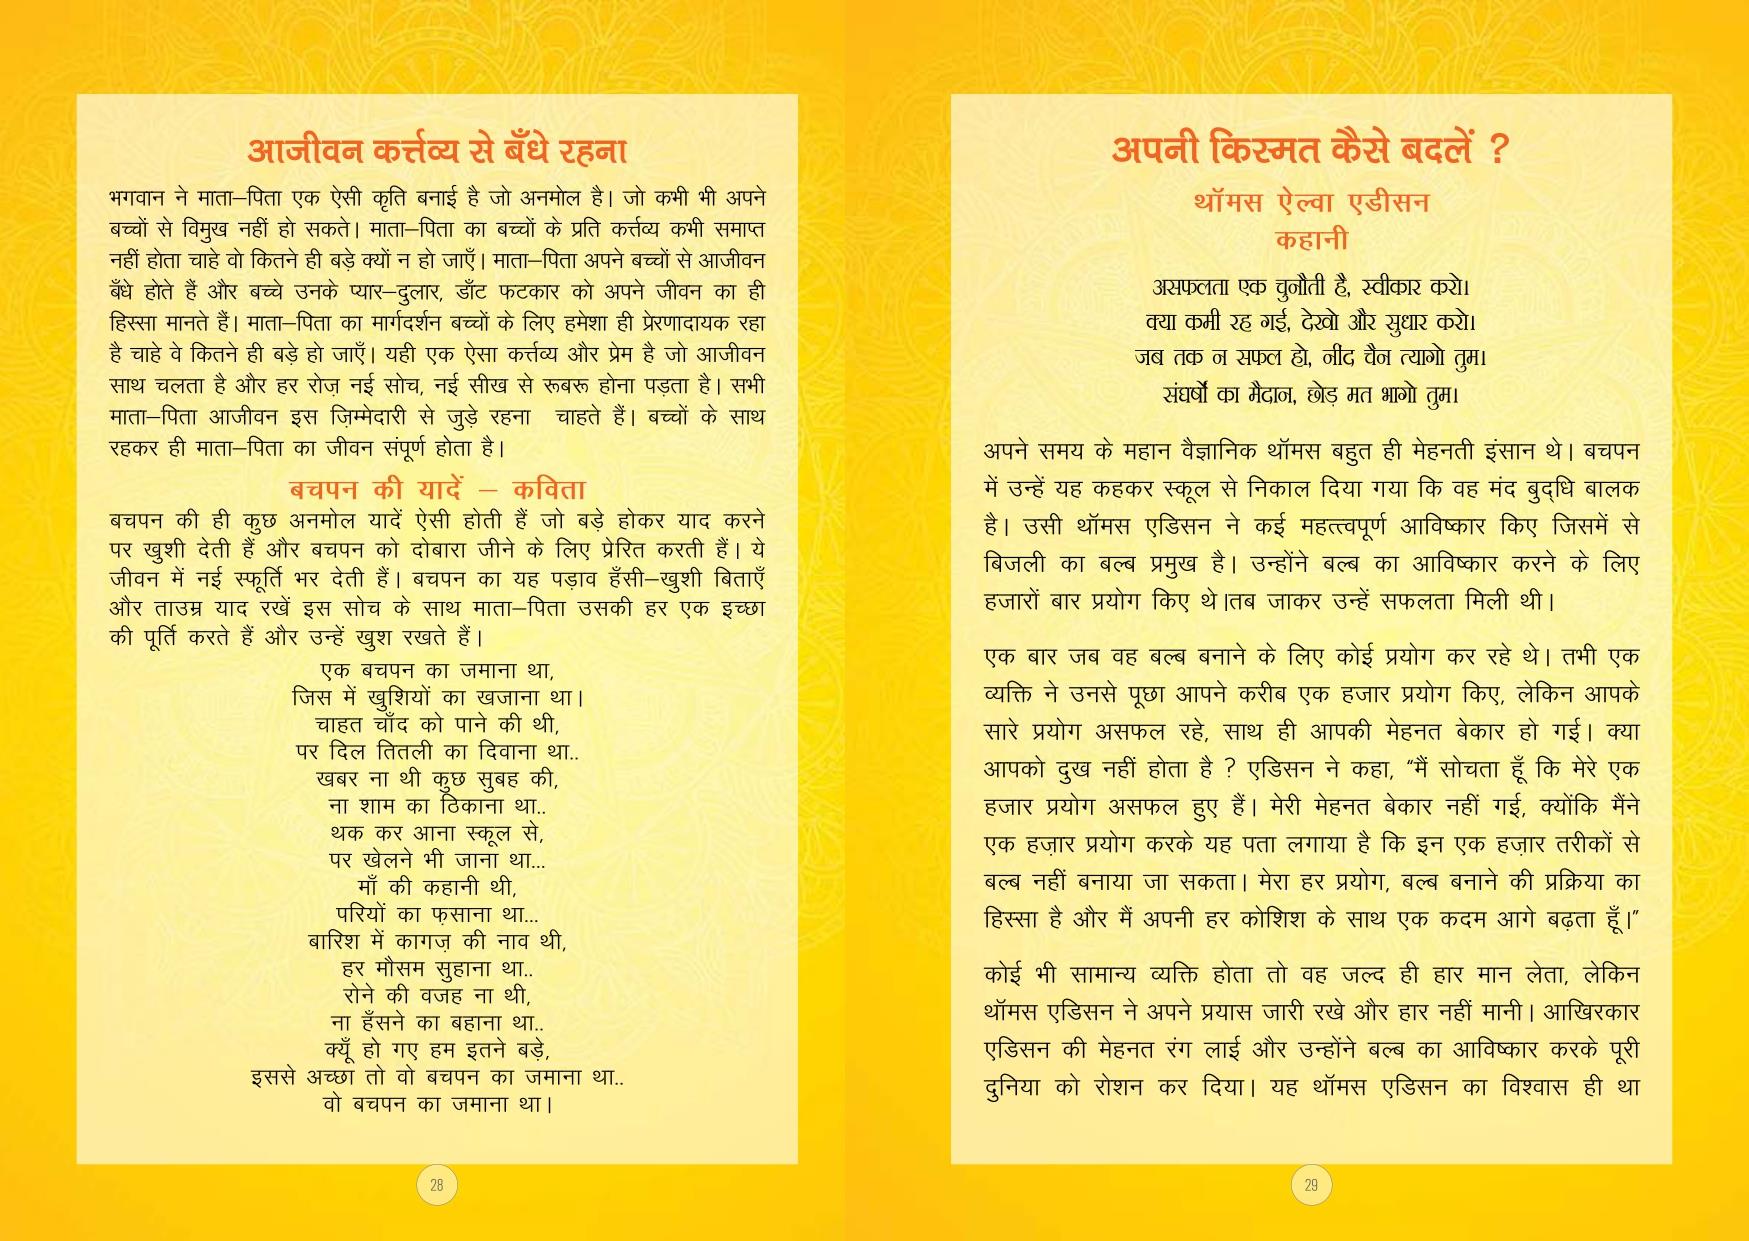 आजीवन कर्त्तव्य से बँधे रहना
भगवान ने माता–पिता एक ऐसी कृति बनाई है जो अनमोल है। जो कभी भी अपने
बच्चों से विमुख नहीं हो सकते। माता–पिता का बच्चों के प्रति कर्त्तव्य कभी समाप्त
नहीं होता चाहे वो कितने ही बड़े क्यों न हो जाएँ। माता–पिता अपने बच्चों से आजीवन
बँधे होते हैं और बच्चे उनके प्यार–दुलार, डाँट फटकार को अपने जीवन का ही
हिस्सा मानते हैं। माता–पिता का मार्गदर्शन बच्चों के लिए हमेशा ही प्रेरणादायक रहा
है चाहे वे कितने ही बड़े हो जाएँ। यही एक ऐसा कर्त्तव्य और प्रेम है जो आजीवन
साथ चलता है और हर रोज़ नई सोच, नई सीख से रूबरू होना पड़ता है। सभी
माता–पिता आजीवन इस ज़िम्मेदारी से जुड़े रहना चाहते हैं। बच्चों के साथ
रहकर ही माता–पिता का जीवन संपूर्ण होता है।
बचपन की यादें – कविता
बचपन की ही कुछ अनमोल यादें ऐसी होती हैं जो बड़े होकर याद करने
पर खुशी देती हैं और बचपन को दोबारा जीने के लिए प्रेरित करती हैं। ये
जीवन में नई स्फूर्ति भर देती हैं। बचपन का यह पड़ाव हँसी–खुशी बिताएँ
और ताउम्र याद रखें इस सोच के साथ माता–पिता उसकी हर एक इच्छा
की पूर्ति करते हैं और उन्हें खुश रखते हैं।
एक बचपन का जमाना था,
जिस में खुशियों का खजाना था।
चाहत चाँद को पाने की थी,
पर दिल तितली का दिवाना था..
खबर ना थी कुछ सुबह की,
ना शाम का ठिकाना था..
थक कर आना स्कूल से,
पर खेलने भी जाना था...
माँ की कहानी थी,
परियों का फ़साना था...
बारिश में कागज़ की नाव थी,
हर मौसम सुहाना था..
रोने की वजह ना थी,
ना हँसने का बहाना था..
क्यूँ हो गए हम इतने बड़े,
इससे अच्छा तो वो बचपन का जमाना था..
वो बचपन का जमाना था।
28
अपनी किस्मत कैसे बदलें ?
थॉमस ऐल्वा एडीसन
कहानी
असफलता एक चुनौती है, स्वीकार करो।
क्या कमी रह गई, देखो और सुधार करो।
जब तक न सफल हो, नींद चैन त्यागो तुम।
संघर्षों का मैदान, छोड़ मत भागो तुम।
अपने समय के महान वैज्ञानिक थॉमस बहुत ही मेहनती इंसान थे। बचपन
में उन्हें यह कहकर स्कूल से निकाल दिया गया कि वह मंद बुद्धि बालक
है। उसी थॉमस एडिसन ने कई महत्त्वपूर्ण आविष्कार किए जिसमें से
बिजली का बल्ब प्रमुख है। उन्होंने बल्ब का आविष्कार करने के लिए
हजारों बार प्रयोग किए थे।तब जाकर उन्हें सफलता मिली थी।
एक बार जब वह बल्ब बनाने के लिए कोई प्रयोग कर रहे थे। तभी एक
व्यक्ति ने उनसे पूछा आपने करीब एक हजार प्रयोग किए, लेकिन आपके
सारे प्रयोग असफल रहे, साथ ही आपकी मेहनत बेकार हो गई। क्या
आपको दुख नहीं होता है ? एडिसन ने कहा, “मैं सोचता हूँ कि मेरे एक
हजार प्रयोग असफल हुए हैं। मेरी मेहनत बेकार नहीं गई, क्योंकि मैंने
एक हज़ार प्रयोग करके यह पता लगाया है कि इन एक हज़ार तरीकों से
बल्ब नहीं बनाया जा सकता। मेरा हर प्रयोग, बल्ब बनाने की प्रक्रिया का
हिस्सा है और मैं अपनी हर कोशिश के साथ एक कदम आगे बढ़ता हूँ।”
कोई भी सामान्य व्यक्ति होता तो वह जल्द ही हार मान लेता, लेकिन
थॉमस एडिसन ने अपने प्रयास जारी रखे और हार नहीं मानी। आखिरकार
एडिसन की मेहनत रंग लाई और उन्होंने बल्ब का आविष्कार करके पूरी
दुनिया को रोशन कर दिया। यह थॉमस एडिसन का विश्वास ही था
29